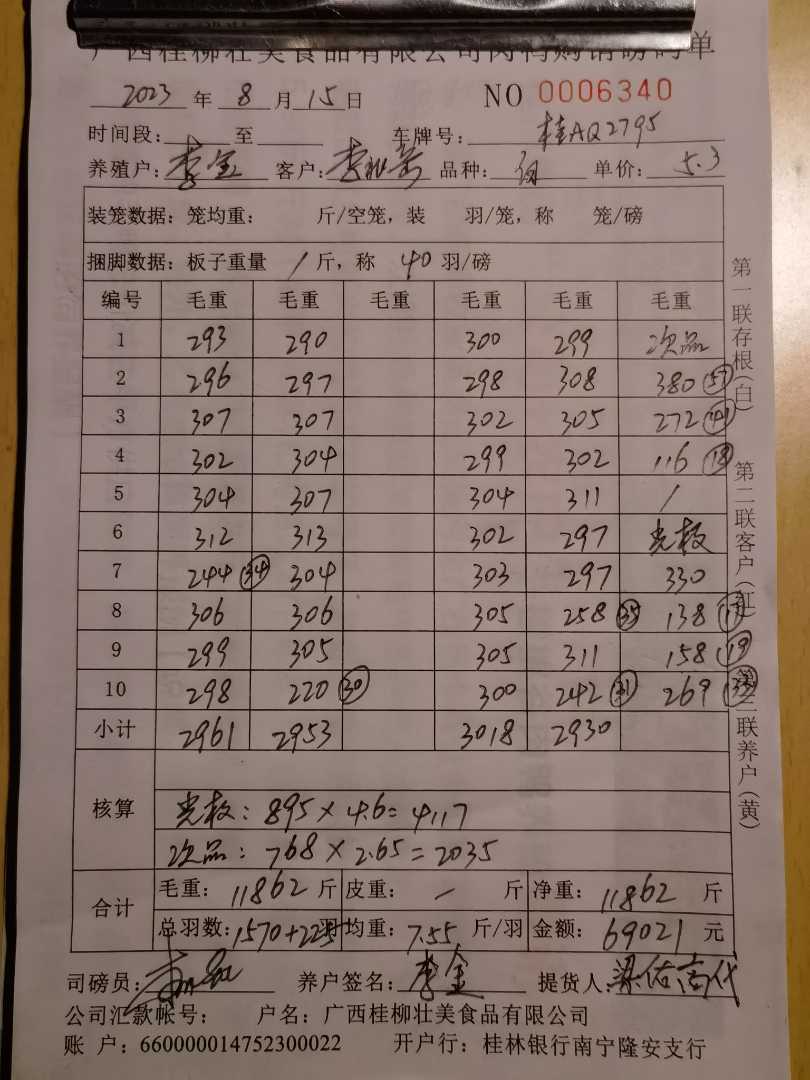 广西桂柳壮美食品有限公司肉鸭购销磅码单
2023 年 8 月 15 日 NO 0006340
时间段: 至 车牌号: 桂AQ2795
养殖户: 李金 客户: 品种: 单价: 5.3
装笼数据: 笼均重: 斤/空笼, 装 羽/笼, 称 笼/磅
捆脚数据: 板子重量 / 斤, 称 40 羽/磅
编号 毛重 毛重 毛重 毛重 毛重 毛重
1 293 290 300 299 次品
2 296 297 298 308 380 57
3 307 307 302 305 272 41
4 302 304 299 302 116 18
5 304 307 304 311 /
6 312 313 302 297 光板
7 244 34 304 303 297 330
8 306 306 305 258 35 138 17
9 299 305 305 311 158 19
10 298 220 30 300 242 31 269
小计 2961 2953 3018 2930
核算
光板: 895 × 4.6 = 4117
次品: 768 × 2.65 = 2035
合计
毛重: 11862 斤 皮重: — 斤 净重: 11862 斤
总羽数: 1570+225 羽 均重: 7.55 斤/羽 金额: 69021 元
司磅员: 养户签名: 李金 提货人: 梁佑高代
公司汇款帐号: 户名: 广西桂柳壮美食品有限公司
账 户: 660000014752300022 开户行: 桂林银行南宁隆安支行
第一联存根(白) 第二联客户(红) 第三联养户(黄)